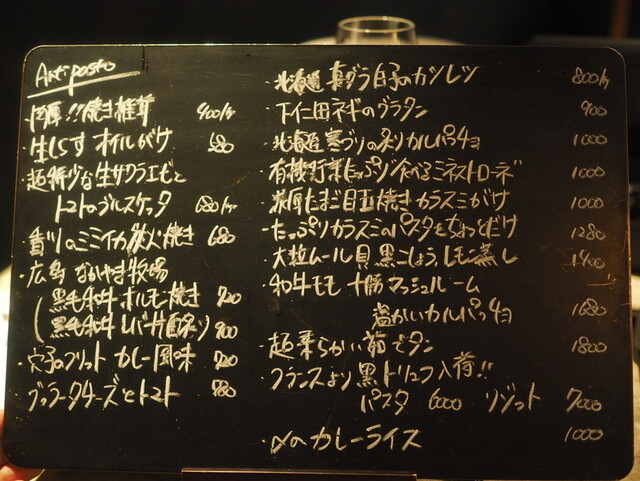 Antipasto
・肉厚!!焼き椎茸 400/ケ
・生しらす オイルがけ 680
・超稀少な生サクラエビと
トマトのブルスケッタ 680/ケ
・香川のミミイカ炭火焼き 680
・広島 なかやま牧場
(黒毛和牛 ホルモン焼き 700
(黒毛和牛 レバー 900
・穴子のフリット カレー風味
ブッラータチーズとトマト 980
・北海道 真ダラ白子のカツレツ 800/ケ
・下仁田ネギのグラタン 900
・北海道 寒ブリの炙りカルパッチョ 1000
・有機野菜たっぷり 食べるミネストローネ 1000
たまご目玉焼き カラスミがけ 1000
・たっぷりカラスミのパスタをちょっとだけ 1280
・大粒ムール貝 黒こしょうレモン蒸し 1400
・和牛モモ 十勝マッシュルーム
温かいカルパッチョ 1680
・超柔らかい茹でタン 1800
・フランスより 黒トリュフ入荷!!
パスタ 6000 リゾット 7000
・〆のカレーライス 1000